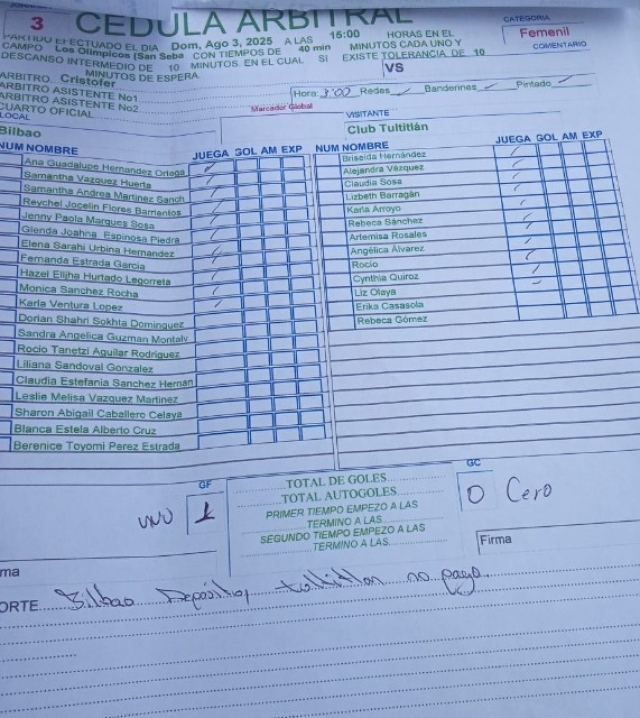 3 CEDULA ARBITRAL
CATEGORIA
Femenil
COMENTARIO
PARTIDO EFECTUADO EL DIA Dom, Ago 3, 2025 A LAS 15:00 HORAS EN EL
CAMPO Los Olimpicos (San Seba CON TIEMPOS DE 40 min MINUTOS CADA UNO Y
DESCANSO INTERMEDIO DE 10 MINUTOS. EN EL CUAL SI EXISTE TOLERANCIA DE 10
MINUTOS DE ESPERA
VS
ARBITRO Cristofer
ARBITRO ASISTENTE No1
ARBITRO ASISTENTE No2
CUARTO OFICIAL
Hora: 3:00 Redes Banderines Pintado
Marcador Global
LOCAL
Bilbao
VISITANTE
Club Tultitlán
NUM NOMBRE JUEGA GOL AM EXP
Ana Guadalupe Hernandez Ortega
Samantha Vazquez Huerta
Samantha Andrea Martinez Sanch
Reychel Jocelin Flores Barrientos
Jenny Paola Marques Sosa
Glenda Joahna Espinosa Piedra
Elena Sarahi Urbina Hernandez
Fernanda Estrada Garcia
Hazel Elijha Hurtado Legorreta
Monica Sanchez Rocha
Karla Ventura Lopez
Dorian Shahri Sokhta Dominguez
Sandra Angelica Guzman Montalv
Rocio Tanetzi Aguilar Rodriguez
Liliana Sandoval Gonzalez
Claudia Estefania Sanchez Hernan
Leslie Melisa Vazquez Martinez
Sharon Abigail Caballero Celaya
Blanca Estela Alberto Cruz
Berenice Toyomi Perez Estrada
NUM NOMBRE JUEGA GOL AM EXP
Briseida Hernández
Alejandra Vázquez
Claudia Sosa
Lizbeth Barragán
Karla Arroyo
Rebeca Sánchez
Artemisa Rosales
Angélica Álvarez
Rocio
Cynthia Quiroz
Liz Olaya
Erika Casasola
Rebeca Gómez
GF
UNO 1
TOTAL DE GOLES
TOTAL AUTOGOLES
PRIMER TIEMPO EMPEZO A LAS
TERMINO A LAS
SEGUNDO TIEMPO EMPEZO A LAS
TERMINO A LAS
GC
0 Cero
ma
Firma
ORTE Bilbao Deposito, tultitlan no pago